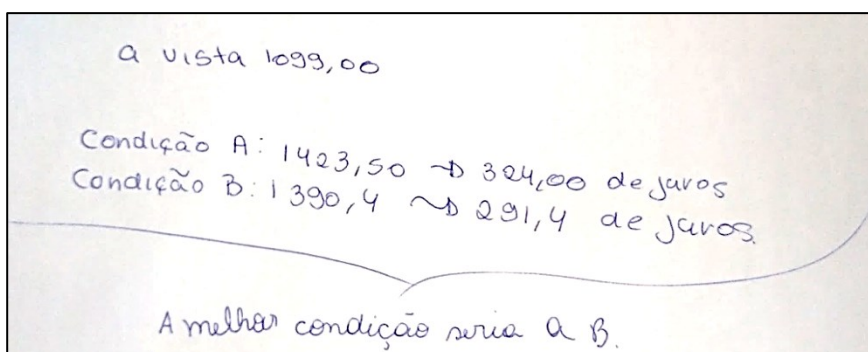 a vista 1099,00
Condição A: 1423,50 → 324,00 de juros
Condição B: 1390,4 ~→ 291,4 de juros.
A melhor condição seria a B.